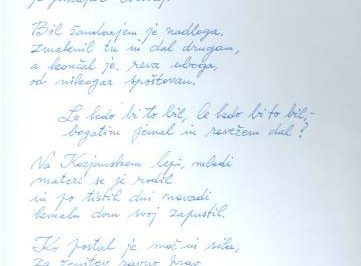 je
Bil žandarjem je nadloga,
zmaknil tu in dal drugam,
a končal je, reva uboga,
od nikogar spoštovan.
Le kdo bi to bil, le kdo bi to bil,
bogatim jemal in revežem dal?
Na Kozjanskem lepi, mladi
materi se je rodil
in po tistih dni navadi
kmalu dom svoj zapustil.
Ko postal je moč in sila,
za ženitev ravno prav